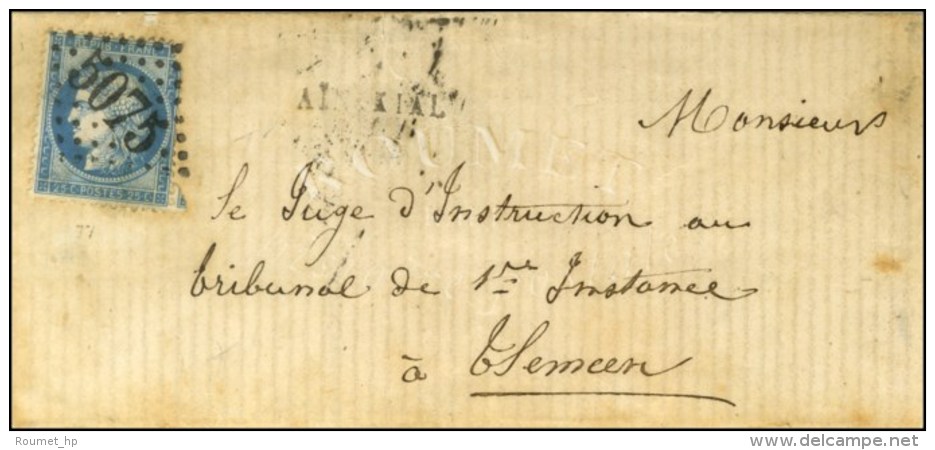 REPUB. FRANC.
5075
25 C. POSTES 25 C.
Monsieur
le Juge d'Instruction au
tribunal de 1re Instance
à Tlemcen
ROUMET
Roumet_hp
delcampe.net